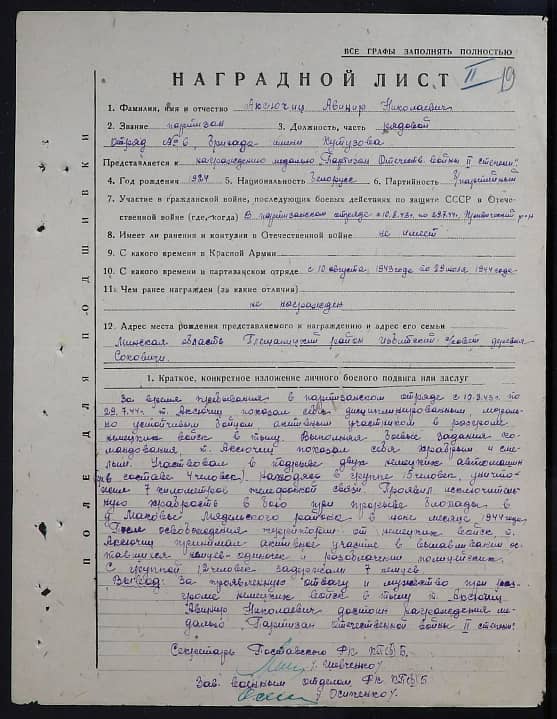 ВСЕ ГРАФЫ ЗАПОЛНЯТЬ ПОЛНОСТЬЮ
НАГРАДНОЙ ЛИСТ II 19
1. Фамилия, имя и отчество Аксючиц Авинир Николаевич
2. Звание партизан 3. Должность, часть рядовой
отряд №6 бригада имени Кутузова
Представляется к награждению медалью Партизан Отечеств. войны II степени.
4. Год рождения 1924 5. Национальность белорусс 6. Партийность б/партейный
7. Участие в гражданской войне, последующих боевых действиях по защите СССР в Отече-
ственной войне (где, когда) В партизанском отряде с 10.8.43г. по 29.7.44г. р-н
8. Имеет ли ранения и контузии в Отечественной войне не имеет
9. С какого времени в Красной Армии
10. С какого времени в партизанском отряде с 10 августа 1943 года по 29 июля 1944 года
11. Чем ранее награжден (за какие отличия)
не награжден
12. Адрес места рождения представляемого к награждению и адрес его семьи
Минская область Плещаницкий район совет деревня
Соковичи.
1. Краткое, конкретное изложение личного боевого подвига или заслуг
За время пребывания в партизанском отряде с 10.8.43г. по
29.7.44г. т. Аксючиц показал себя дисциплинированным, мораль-
но устойчивым бойцом, активным участником в разгроме
немецких войск в тылу. Выполняя боевые задания ко-
мандования т. Аксючиц показал себя храбрым и сме-
лым. Участвовал в подрыве двух немецких автомашин
(в составе 4 человек). Находясь в группе 15 человек, уничто-
жили 7 километров связи. Проявил исключитель-
ную храбрость в бою при прорыве блокады в
д. Маковье Мядельского района в июне месяце 1944 года.
После освобождения территории от немецких войск т.
Аксючиц принимал активное участие в вылавливании ос-
тавшихся немцев-одиночек и разоблачении помощников.
С группой 12 человек задержали 7 немцев.
Вывод: За проявленную отвагу и мужество при раз-
грома немецких войск в тылу т. Аксючиц
Авинир Николаевич достоин награждения ме-
далью Партизан Отечественной войны II степени.
Секретарь Поставского РК КП(б)Б
/Шевченко/
Зав. военным отделом РК КП(б)Б
/Осипенко/
ПОЛЕ ДЛЯ ПОДШИВКИ